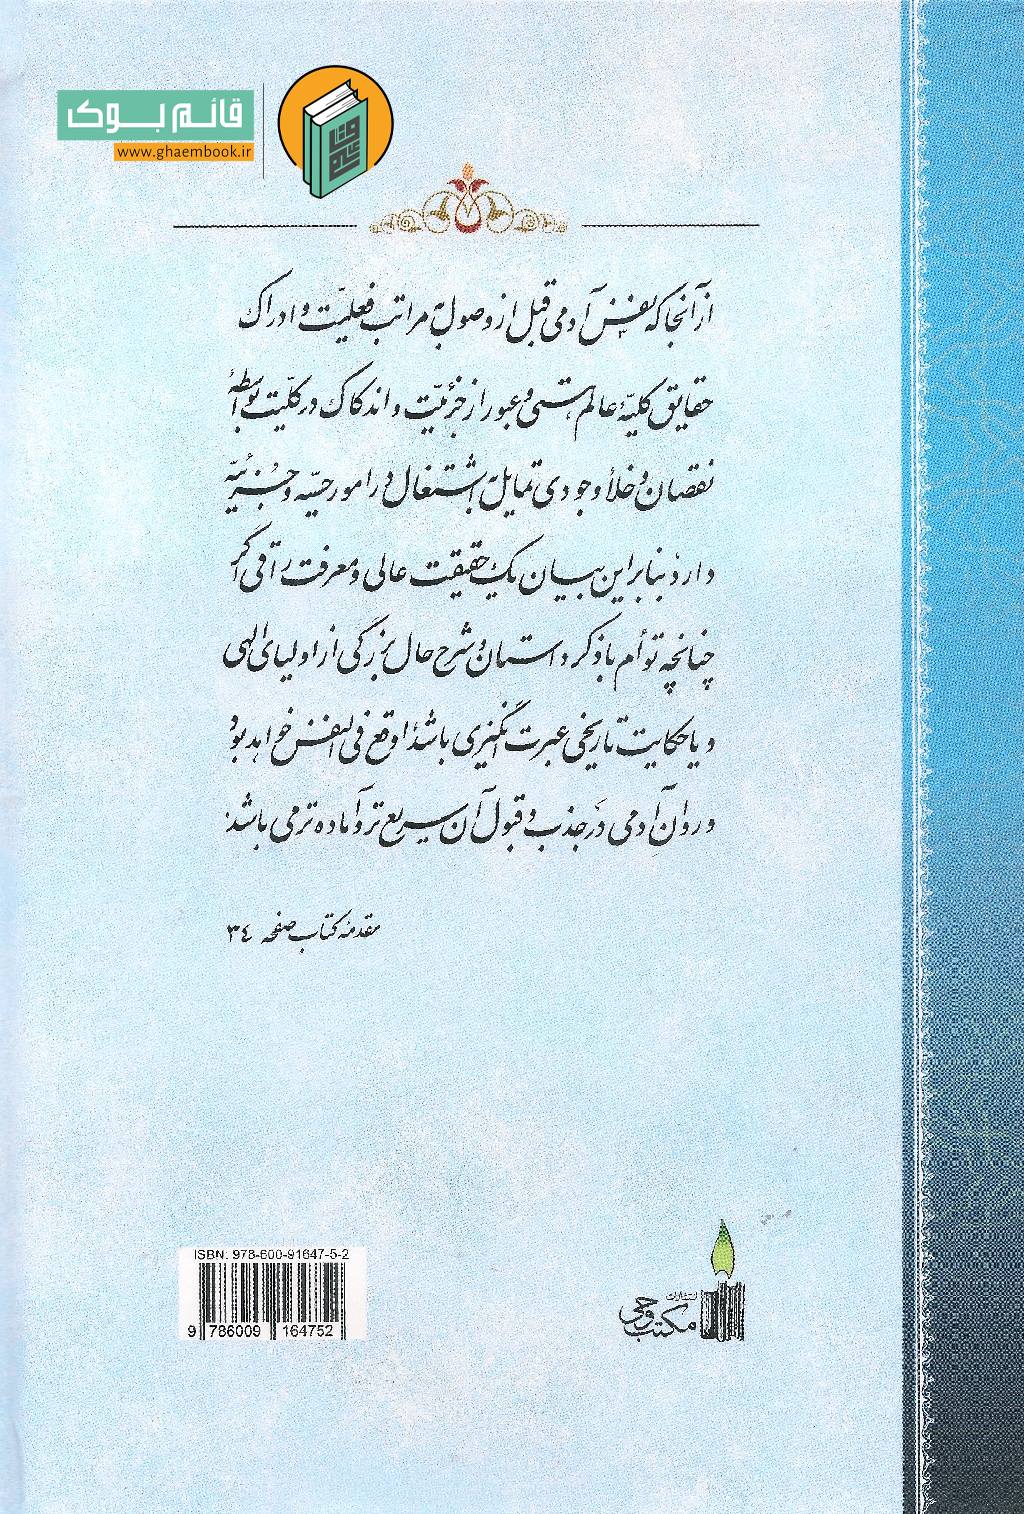 قائم بوک
www.ghaembook.ir
از آنجا که نفس آدمی قبل از وصول به مراتب فعلیّت و ادراک
حقایق کلیّهٔ عالم هستی و عبور از جزئیّت و اندکاک در کلّیت بواسطهٔ
نقصان و خلأ وجودی تمایل به اشتغال در امور حسّیه و جزئیّه
دارد بنابراین بیان یک حقیقت عالی و معرفت راقی اگر
چنانچه توأم با ذکر داستان و شرح حال بزرگی از اولیای الهی
و یا حکایت تاریخی عبرت انگیزی باشد اوقع فی النفس خواهد بود
و روان آدمی در جذب و قبول آن سریع تر و آماده تر می باشد.
مقدمهٔ کتاب صفحه ۳٤
ISBN: 978-600-91647-5-2
9 786009 164752
انتشارات
مکتب وحی